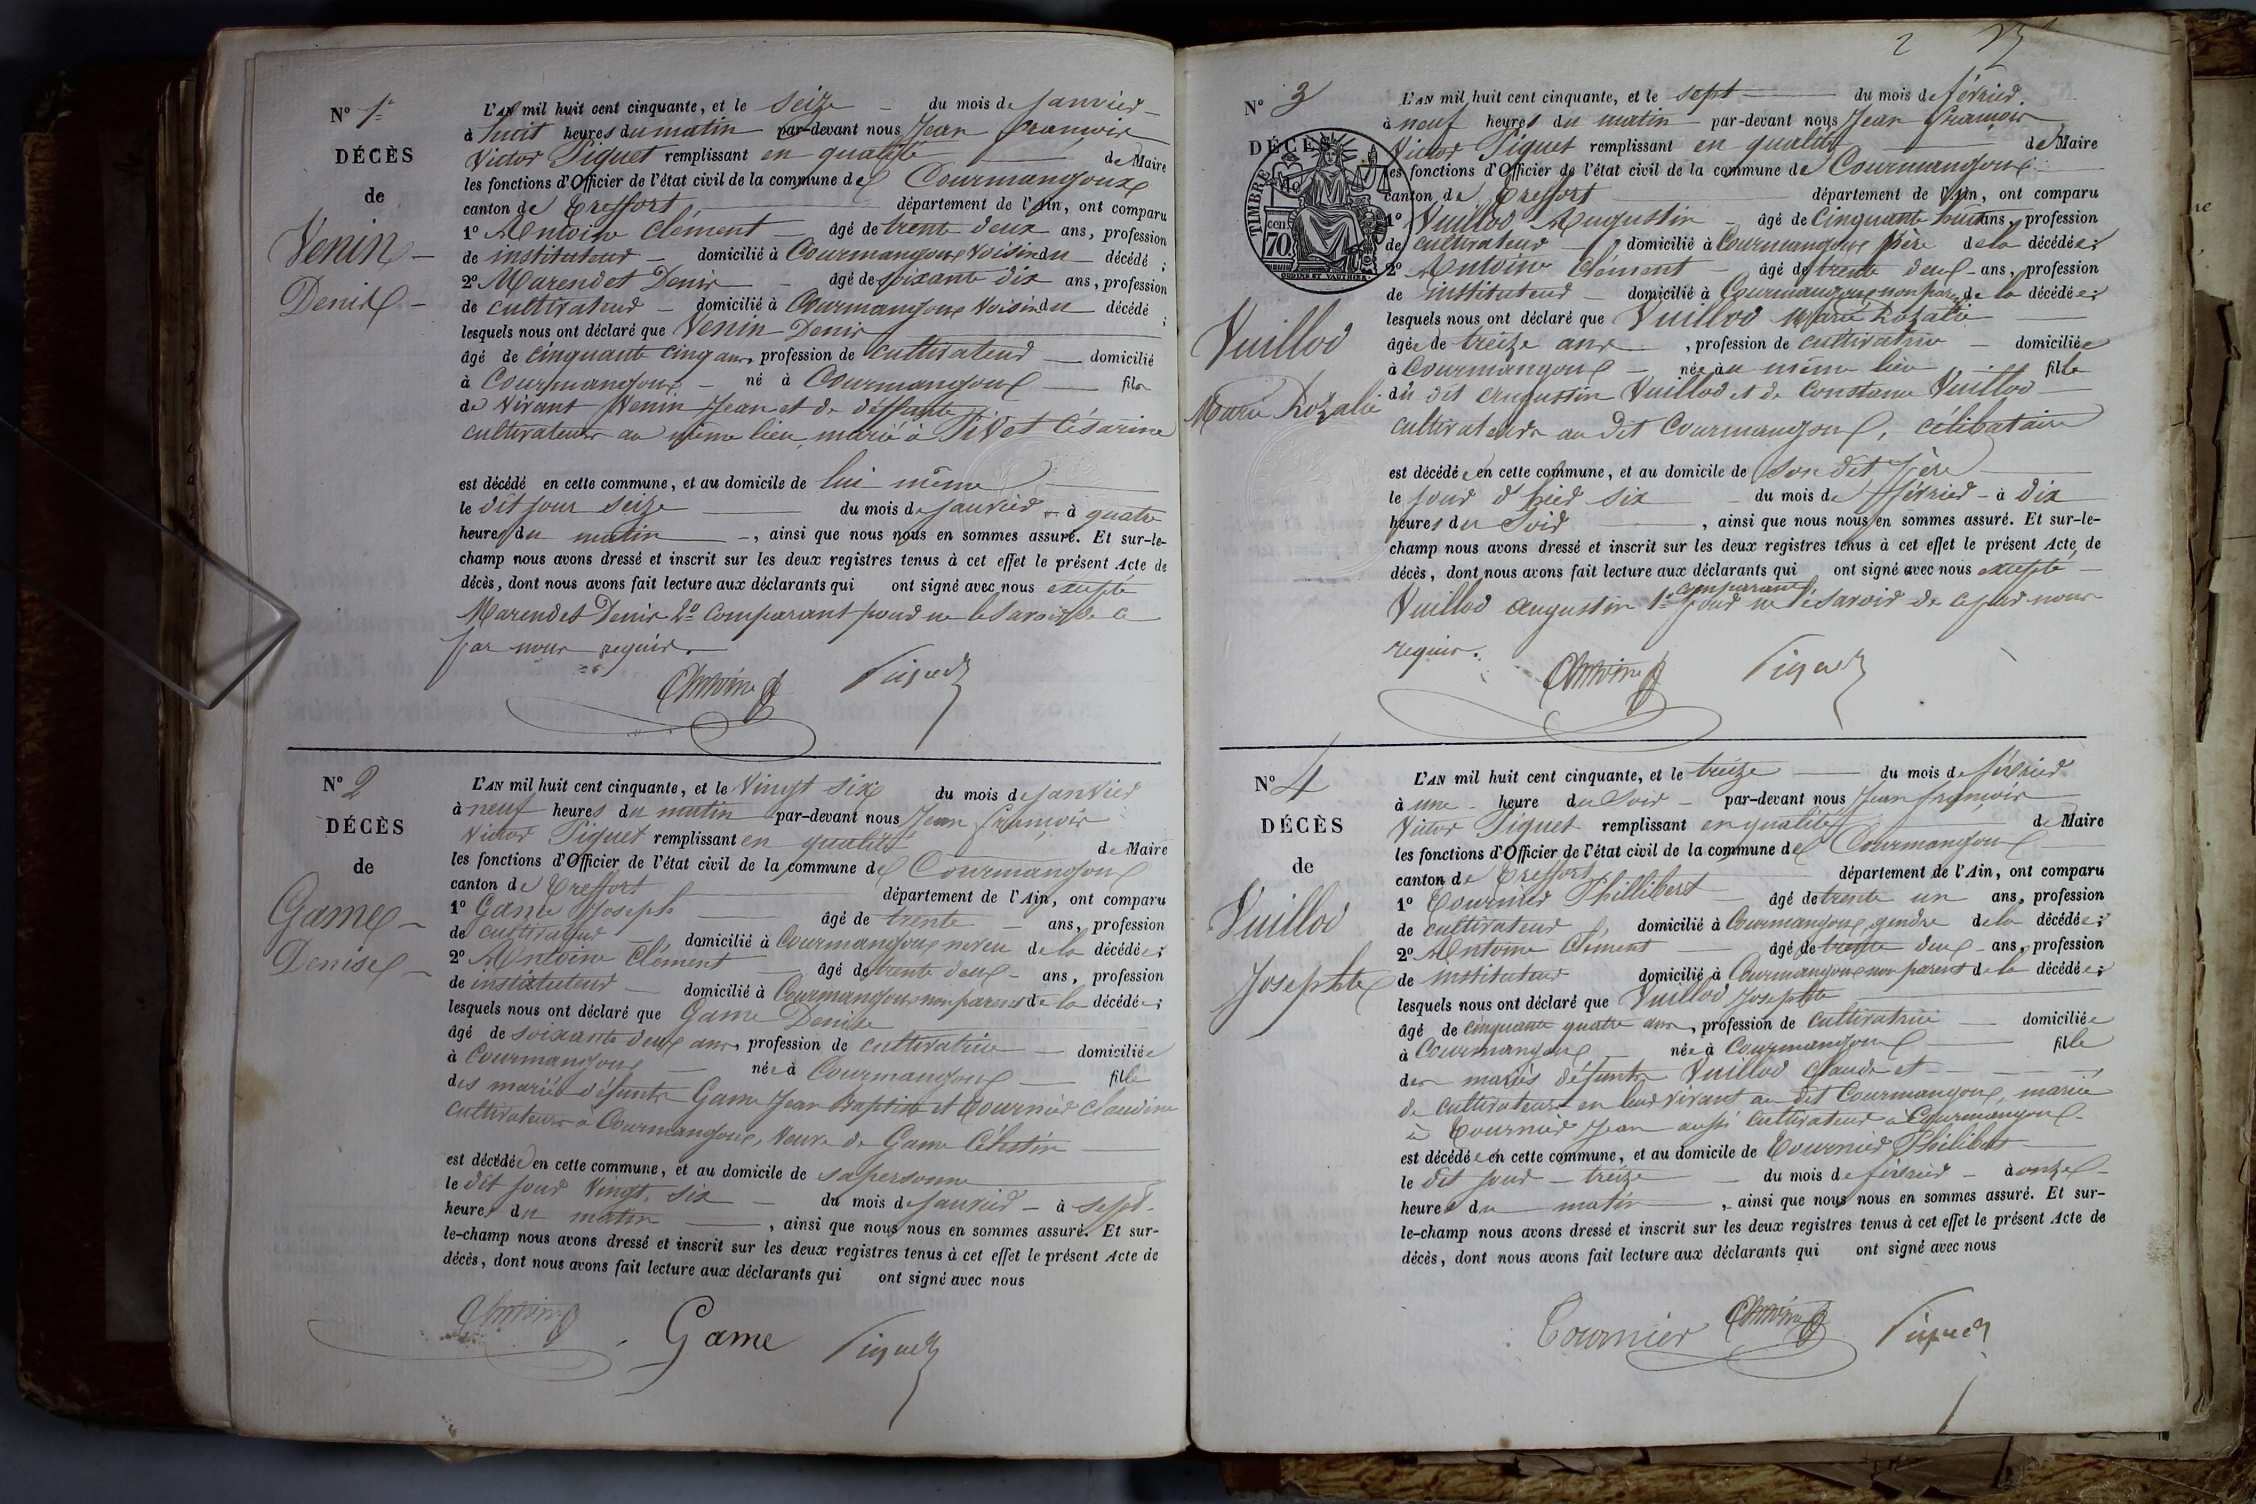 No 1er
DÉCÈS
de
Venin
Denis
L'AN mil huit cent cinquante, et le seize du mois de janvier
à huit heures du matin par-devant nous Jean François
Victor Piquet remplissant en qualité de Maire
les fonctions d'Officier de l'état civil de la commune de Courmangoux
canton de Treffort département de l'Ain, ont comparu
1º Antoine Clément âgé de trente deux ans, profession
de instituteur domicilié à Courmangoux voisin du décédé ;
2º Marendet Denis âgé de soixante dix ans, profession
de cultivateur domicilié à Courmangoux voisin du décédé ;
lesquels nous ont déclaré que Venin Denis
âgé de cinquante cinq ans, profession de cultivateur domicilié
à Courmangoux né à Courmangoux fils
de vivant Venin Jean et de déffunte
cultivateurs au même lieu, marié à Pivet Césarine
est décédé en cette commune, et au domicile de lui même
le dit jour seize du mois de janvier à quatre
heures du matin, ainsi que nous nous en sommes assuré. Et sur-le-
champ nous avons dressé et inscrit sur les deux registres tenus à cet effet le présent Acte de
décès, dont nous avons fait lecture aux déclarants qui ont signé avec nous excepté
Marendet Denis 2º comparant pour ne le savoir de ce
par nous requis.
Antoine Piquet
No 2
DÉCÈS
de
Game
Denise
L'AN mil huit cent cinquante, et le vingt six du mois de janvier
à neuf heures du matin par-devant nous Jean François
Victor Piquet remplissant en qualité de Maire
les fonctions d'Officier de l'état civil de la commune de Courmangoux
canton de Treffort département de l'Ain, ont comparu
1º Game Joseph âgé de trente ans, profession
de cultivateur domicilié à Courmangoux neveu de la décédée ;
2º Antoine Clément âgé de trente deux ans, profession
de instituteur domicilié à Courmangoux non parent de la décédée ;
lesquels nous ont déclaré que Game Denise
âgé de soixante deux ans, profession de cultivatrice domiciliée
à Courmangoux née à Courmangoux fille
des mariés défunts Game Jean Baptiste et Tournier Claudine
cultivateurs à Courmangoux, veuve de Game Célestin
est décédée en cette commune, et au domicile de sa personne
le dit jour vingt six du mois de janvier à sept
heures du matin, ainsi que nous nous en sommes assuré. Et sur-
le-champ nous avons dressé et inscrit sur les deux registres tenus à cet effet le présent Acte de
décès, dont nous avons fait lecture aux déclarants qui ont signé avec nous
Antoine Game Piquet
2
No 3
DÉCÈS
TIMBRE
70 cen
OUDINE ET VAUTHIER
Vuillod
Marie Rozalie
L'AN mil huit cent cinquante, et le sept du mois de février
à neuf heures du matin par-devant nous Jean François
Victor Piquet remplissant en qualité de Maire
les fonctions d'Officier de l'état civil de la commune de Courmangoux
canton de Treffort département de l'Ain, ont comparu
1º Vuillod Augustin âgé de cinquante huit ans, profession
de cultivateur domicilié à Courmangoux père de la décédée ;
2º Antoine Clément âgé de trente deux ans, profession
de instituteur domicilié à Courmangoux non parent de la décédée ;
lesquels nous ont déclaré que Vuillod Marie Rozalie
âgée de treize ans, profession de cultivatrice domiciliée
à Courmangoux née au même lieu fille
du dit Augustin Vuillod et de Constance Vuillod
cultivateurs au dit Courmangoux, célibataire
est décédée en cette commune, et au domicile de son dit père
le jour d'hier six du mois de février à dix
heures du soir, ainsi que nous nous en sommes assuré. Et sur-le-
champ nous avons dressé et inscrit sur les deux registres tenus à cet effet le présent Acte de
décès, dont nous avons fait lecture aux déclarants qui ont signé avec nous excepté
Vuillod Augustin 1er comparant pour ne le savoir de ce par nous
requis.
Antoine Piquet
No 4
DÉCÈS
de
Vuillod
Josephte
L'AN mil huit cent cinquante, et le treize du mois de février
à une heure du soir par-devant nous Jean françois
Victor Piquet remplissant en qualité de Maire
les fonctions d'Officier de l'état civil de la commune de Courmangoux
canton de Treffort département de l'Ain, ont comparu
1º Tournier Phillibert âgé de trente un ans, profession
de cultivateur domicilié à Courmangoux gendre de la décédée ;
2º Antoine Clément âgé de trente deux ans, profession
de instituteur domicilié à Courmangoux non parent de la décédée ;
lesquels nous ont déclaré que Vuillod Josephte
âgé de cinquante quatre ans, profession de cultivatrice domiciliée
à Courmangoux née à Courmangoux fille
des mariés défunts Vuillod Claude et
de cultivateurs en leur vivant au dit Courmangoux, mariée
à Tournier Jean aussi cultivateur à Courmangoux
est décédée en cette commune, et au domicile de Tournier Philibert
le dit jour treize du mois de février à onze
heures du matin, ainsi que nous nous en sommes assuré. Et sur-
le-champ nous avons dressé et inscrit sur les deux registres tenus à cet effet le présent Acte de
décès, dont nous avons fait lecture aux déclarants qui ont signé avec nous
Tournier Antoine Piquet